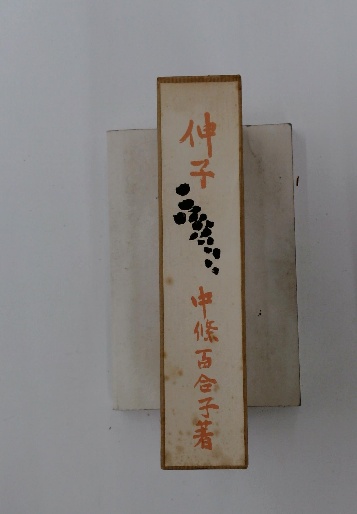 伸子
中條百合子著